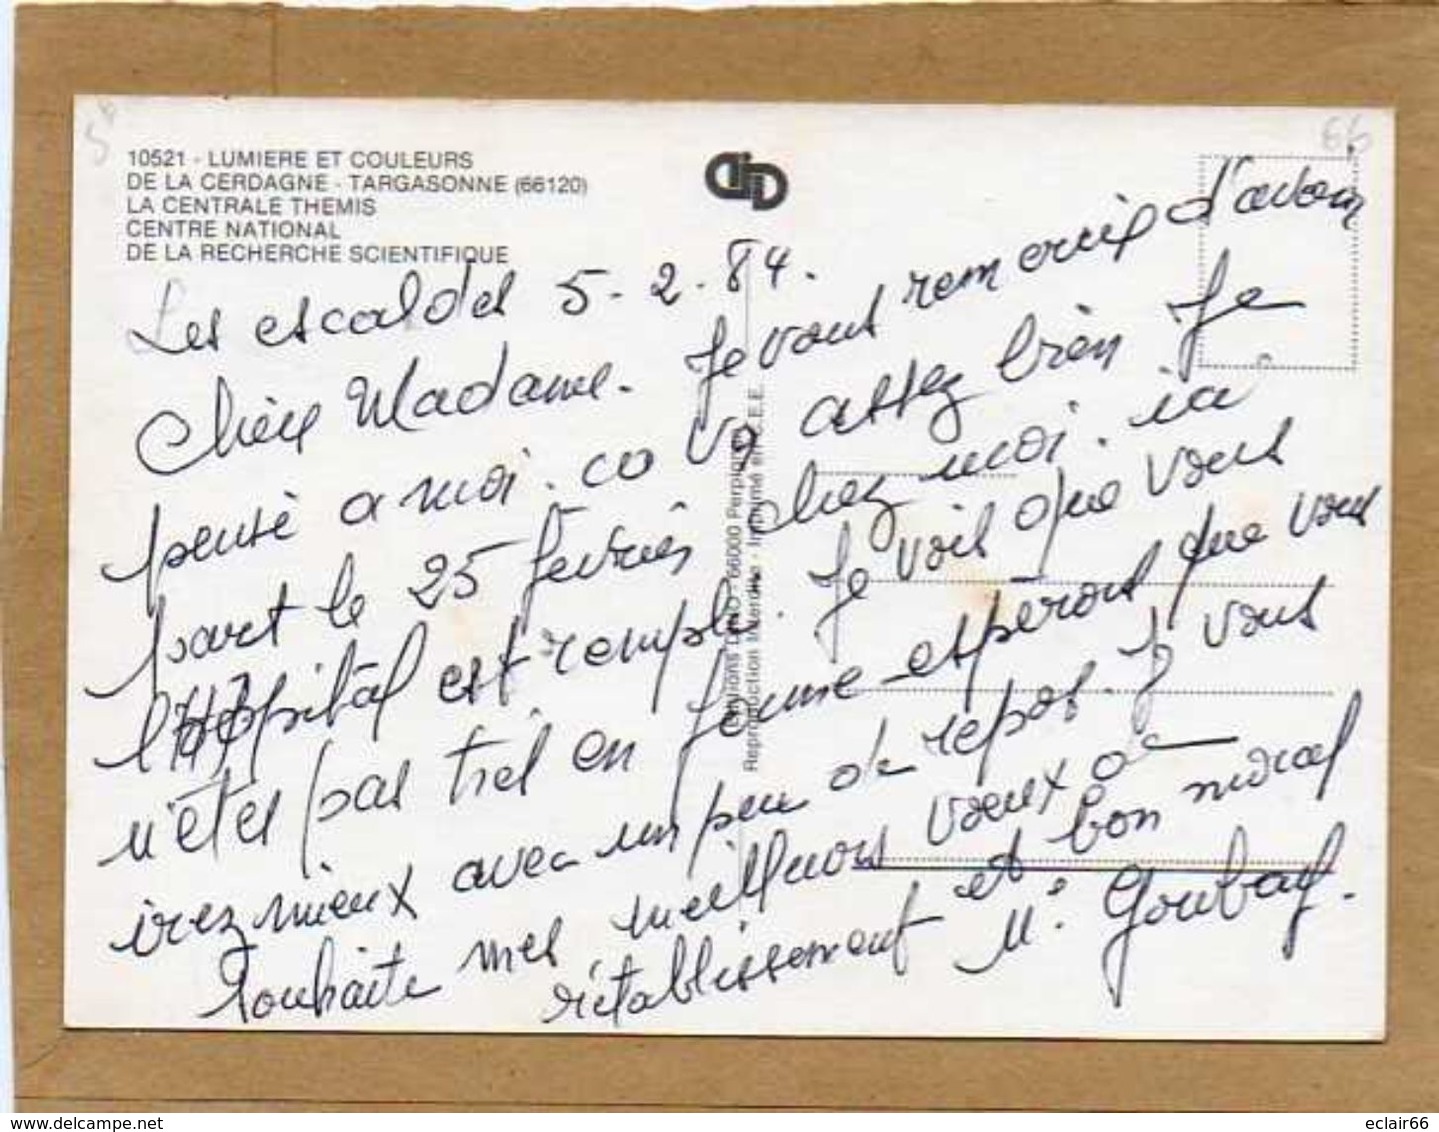 10521 - LUMIERE ET COULEURS
DE LA CERDAGNE - TARGASONNE (66120)
LA CENTRALE THEMIS
CENTRE NATIONAL
DE LA RECHERCHE SCIENTIFIQUE
66
Les escaldes 5-2-84.
Chère Madame. Je vous remercie d'avoir
pensé a moi. ca va assez bien Je
part le 25 février chez moi. ici
l'Hôpital est rempli. Je vois que vous
n'êtes pas très en forme espérons que vous
irez mieux avec un peu de repos. Je vous
souhaite mes meilleurs vœux de
rétablissement et bon moral
M.
66000 Perpignan
Reproduction Interdite - Imprimé en C.E.E.
delcampe.net
eclair66